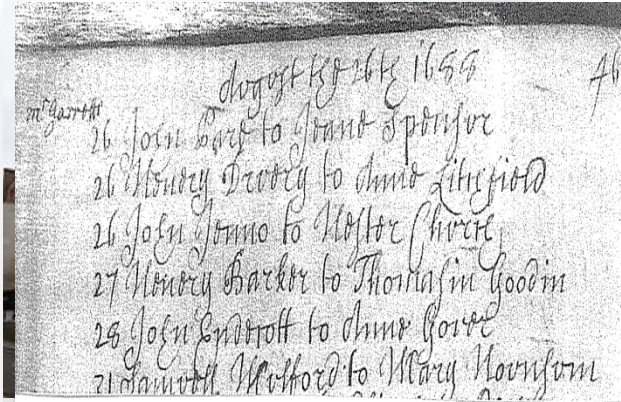 Augost the 26th 1688
mr Garrett
26 John Barg to Jeane Spensor
26 Henery Droery to Anne Litchfield
26 John Jenno to Hester
27 Henery Barker to Thomasin Goodin
28 John Enderott to Anne Gover
Samuell to Mary